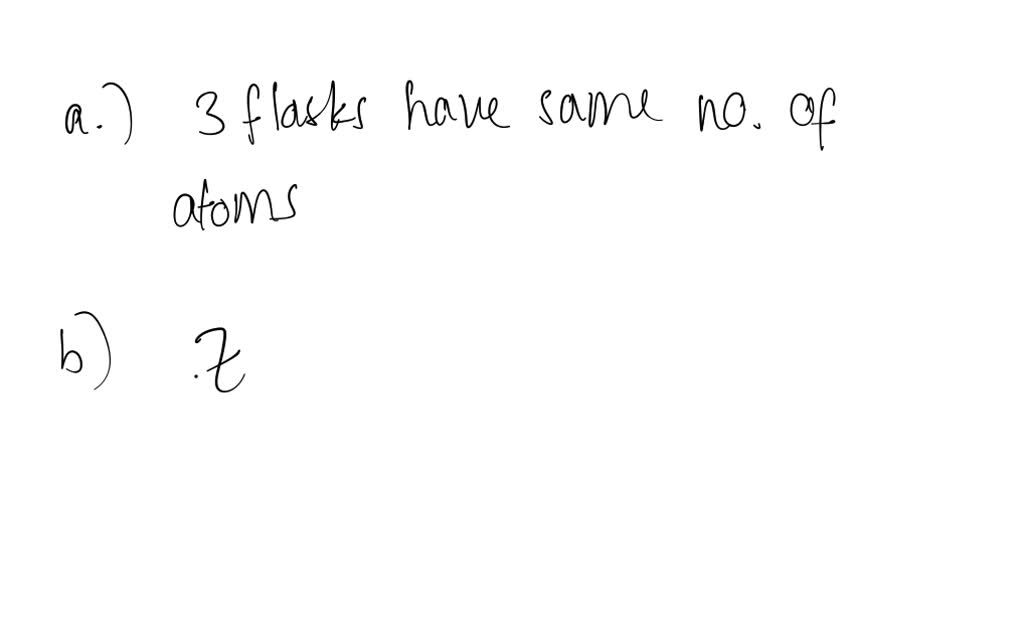 a.) 3 flasks have same no. of
atoms
b) .Z